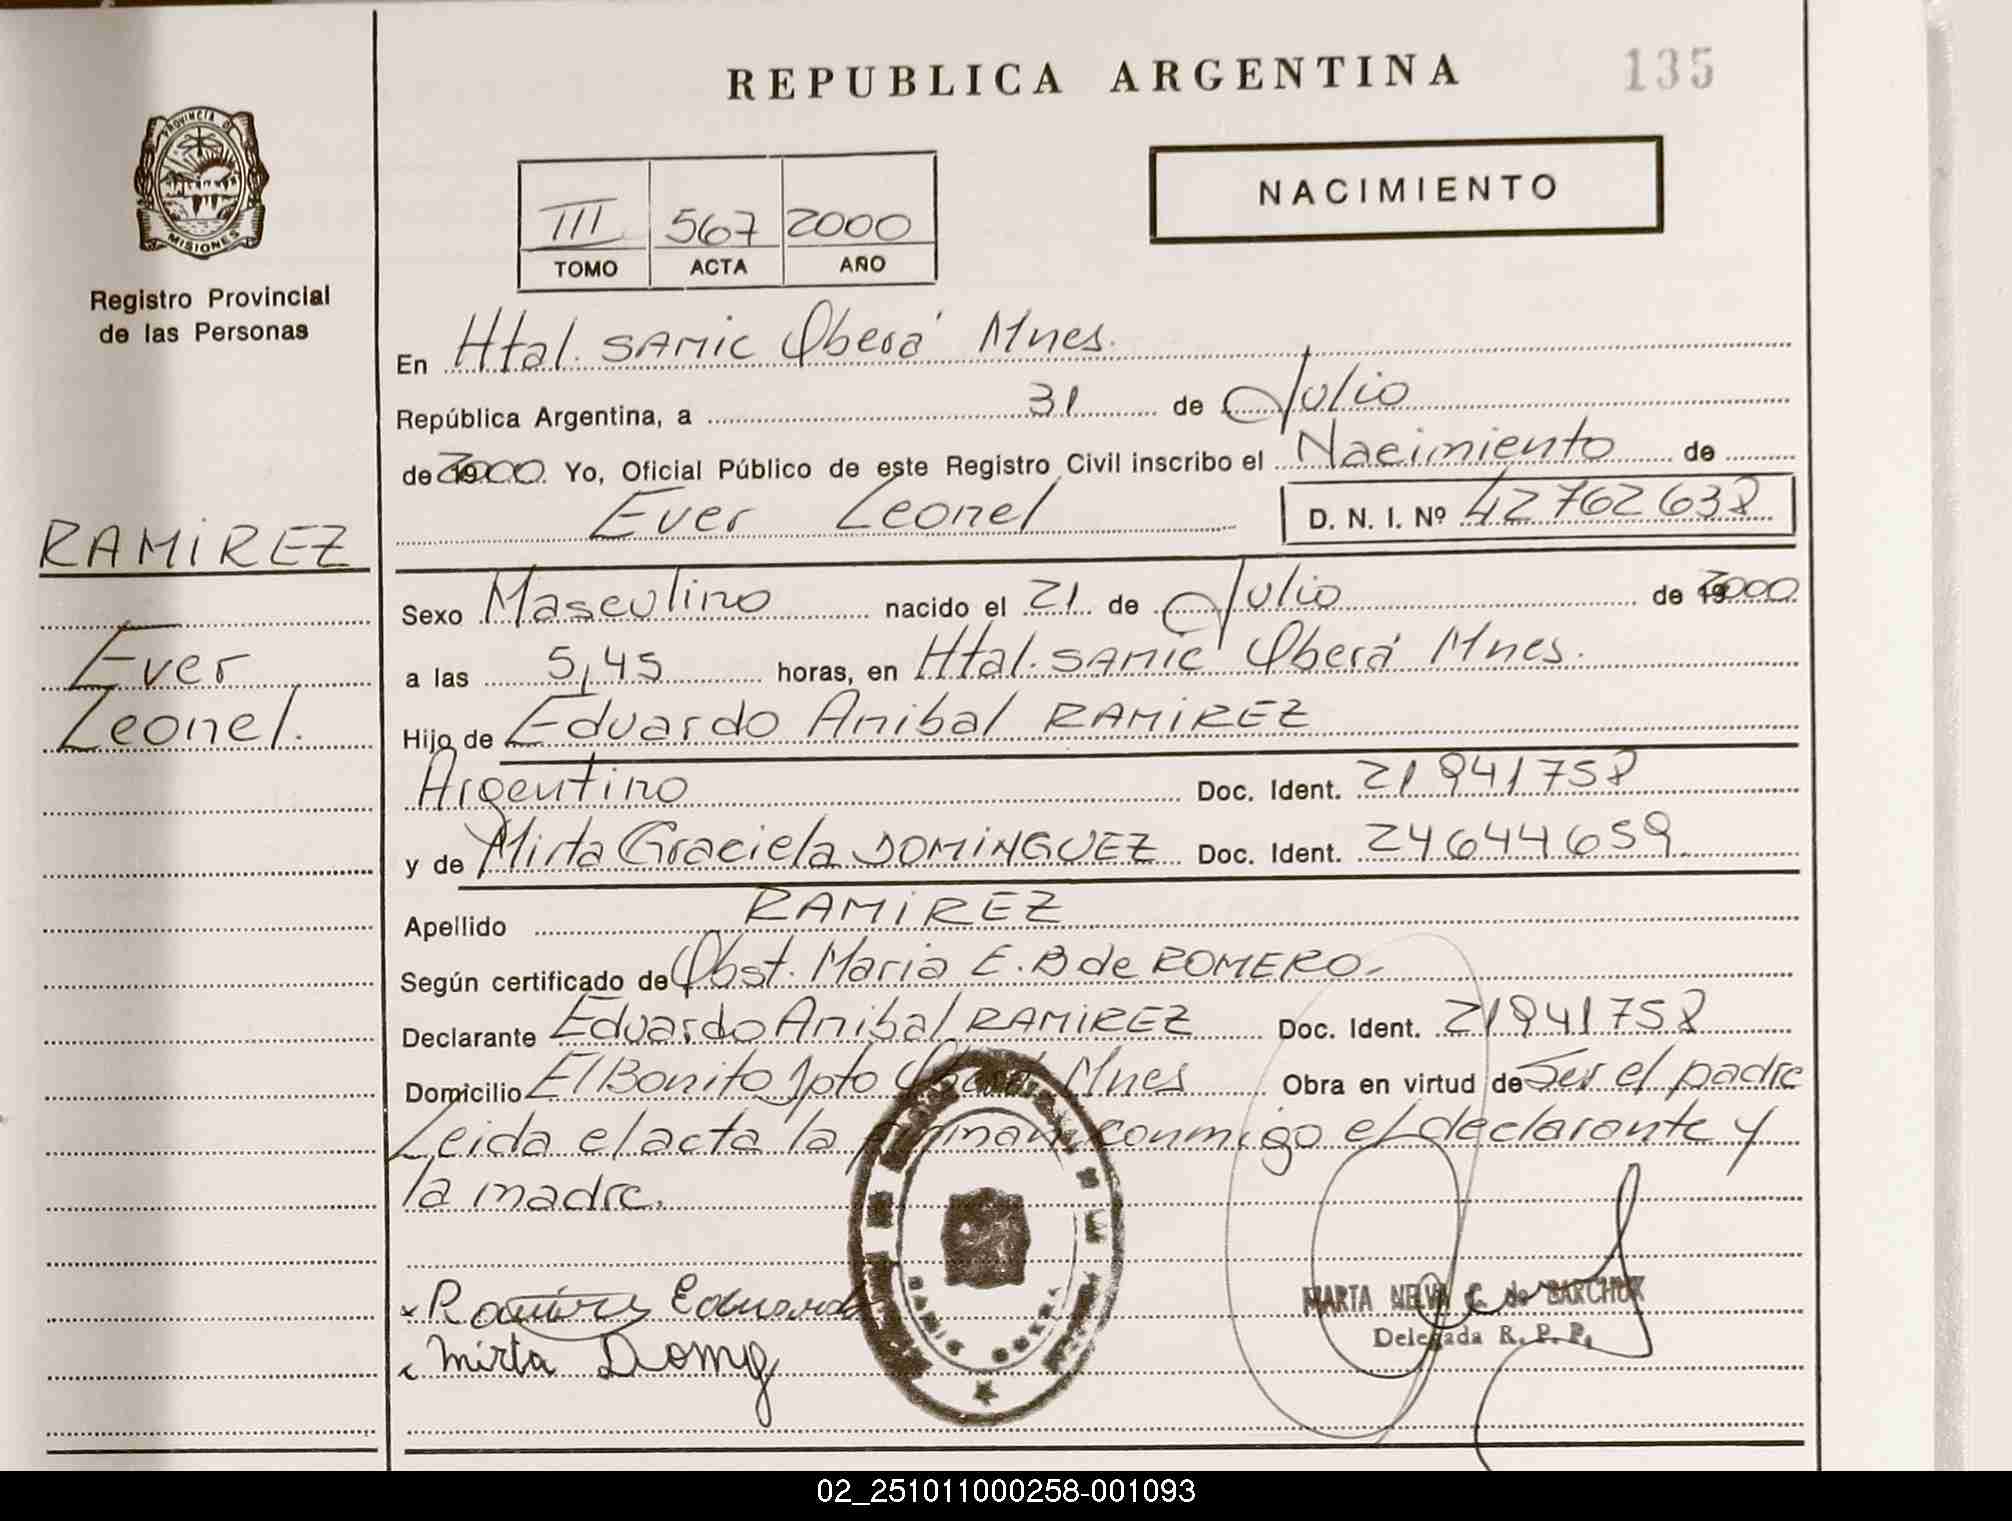 REPUBLICA ARGENTINA
135
PROVINCIA DE
MISIONES
Registro Provincial
de las Personas
NACIMIENTO
III 567 2000
TOMO ACTA AÑO
En Htal. SAMIC Oberá Mnes.
República Argentina, a 31 de Julio
de 2000 Yo, Oficial Público de este Registro Civil inscribo el Nacimiento de
Ever Leonel D. N. I. Nº 42762638
RAMIREZ
Ever
Leonel.
Sexo Masculino nacido el 21 de Julio de 2000
a las 5,45 horas, en Htal. SAMIC Oberá Mnes.
Hijo de Eduardo Anibal RAMIREZ
Argentino Doc. Ident. 21941758
y de Mirta Graciela DOMINGUEZ Doc. Ident. 24644659
Apellido RAMIREZ
Según certificado de Obst. Maria E. B de ROMERO-
Declarante Eduardo Anibal RAMIREZ Doc. Ident. 21941758
Domicilio El Bonito Dpto Oberá Mnes Obra en virtud de Ser el padre
Leida el acta la firman conmigo el declarante y
la madre.
x Ramirez Eduardo
Mirta Domg
SAMIC OBERA
MARTA NELVA C. de BARCHUK
Delegada R. P. P.
02_251011000258-001093